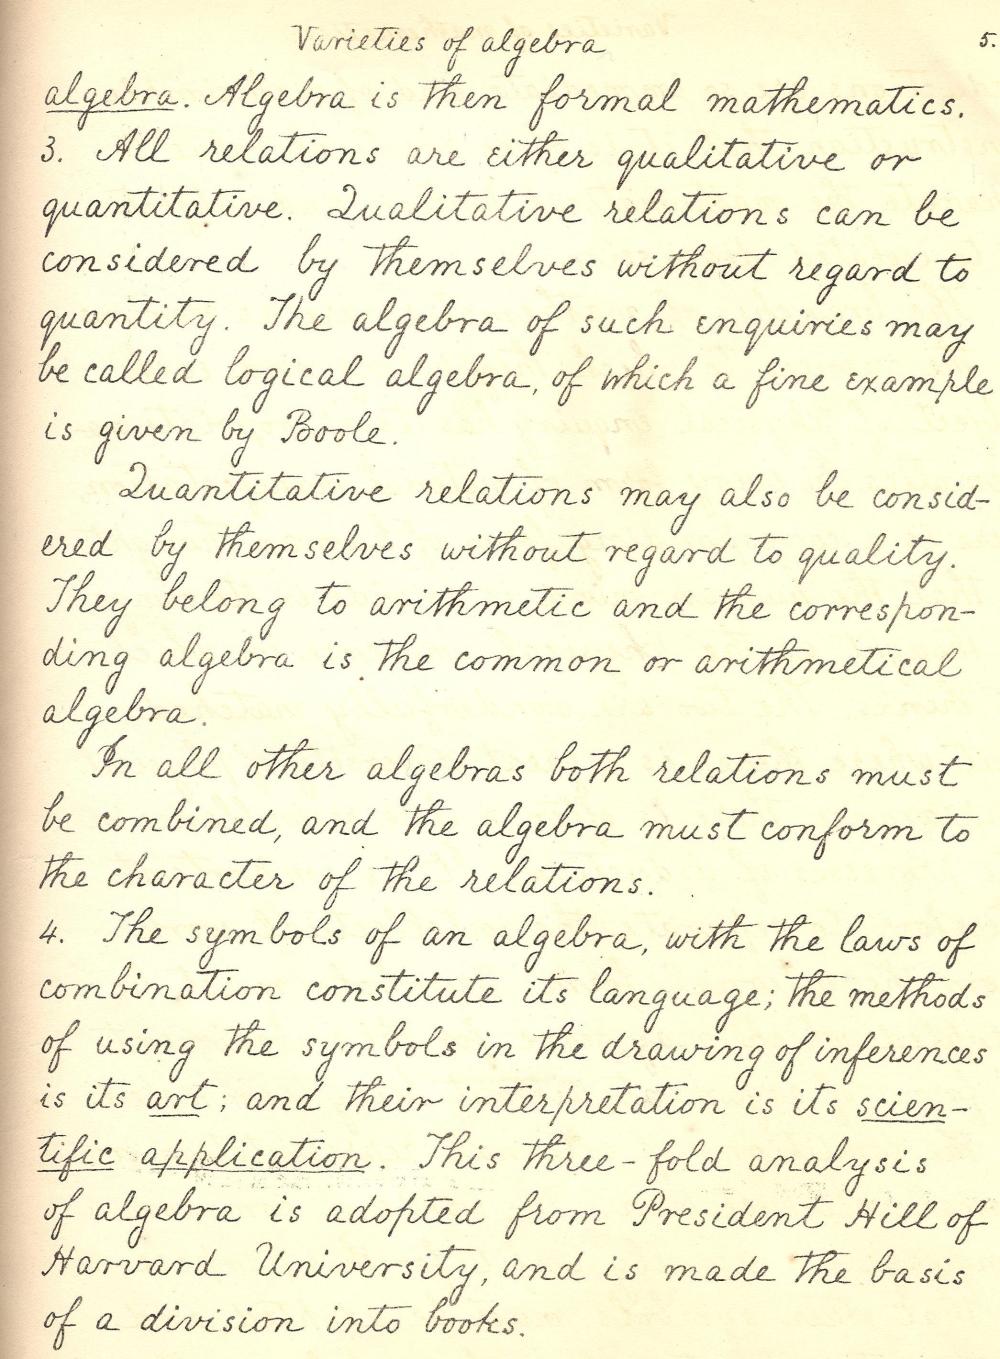 Varieties of algebra 5.
algebra. Algebra is then formal mathematics.
3. All relations are either qualitative or
quantitative. Qualitative relations can be
considered by themselves without regard to
quantity. The algebra of such enquiries may
be called logical algebra, of which a fine example
is given by Boole.
Quantitative relations may also be consid-
ered by themselves without regard to quality.
They belong to arithmetic and the correspon-
ding algebra is the common or arithmetical
algebra.
In all other algebras both relations must
be combined, and the algebra must conform to
the character of the relations.
4. The symbols of an algebra, with the laws of
combination constitute its language; the methods
of using the symbols in the drawing of inferences
is its art; and their interpretation is its scien-
tific application. This three-fold analysis
of algebra is adopted from President Hill of
Harvard University, and is made the basis
of a division into books.